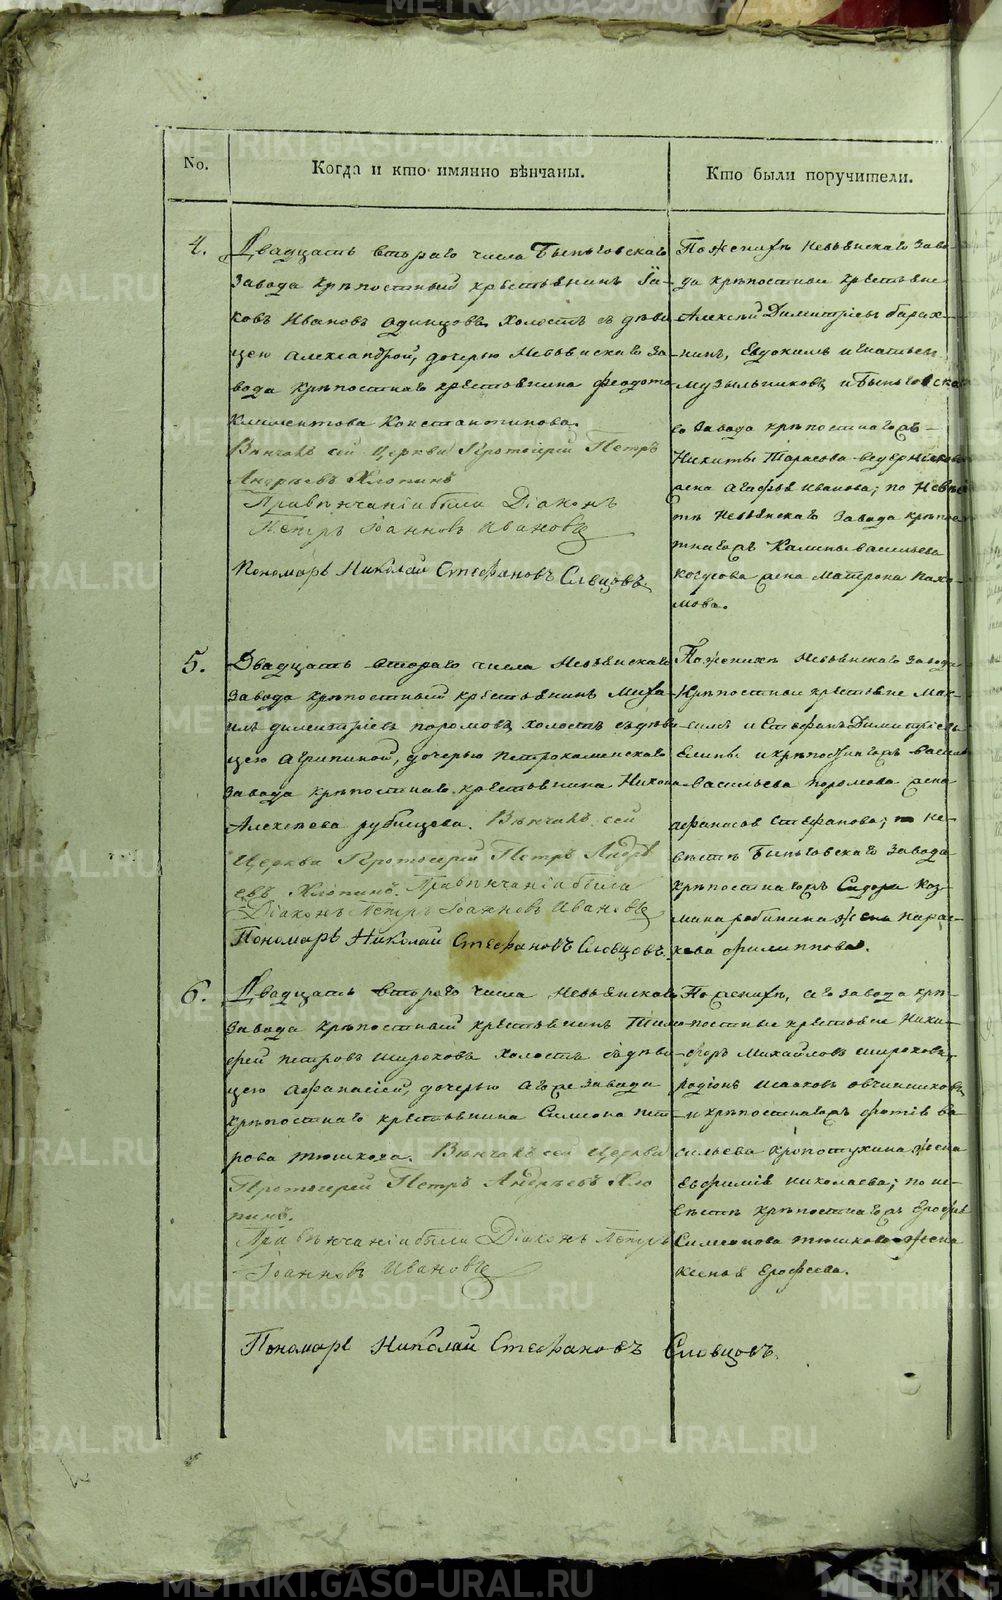 No.
Когда и кто имянно вѣнчаны.
Кто были поручители.
4.
Двадцать втораго числа Быньговскаго
завода крѣпостный крестьянинъ Iа-
ковъ Ивановъ Одинцовъ холостъ съ дѣви
цею Александрой, дочерью Невьянскаго за
вода крѣпостнаго крестьянина Феодота
Климентова Константинова.
Вѣнчалъ сей церкви Протоіерей Петръ
Андреевъ Хлопинъ
При вѣнчаніи были Діаконъ
Петръ Іоанновъ Ивановъ
Пономарь Николай Стефановъ Словцовъ.
По женихѣ Невьянскаго заво-
да крѣпостные крестьяне
Алексѣй Димитріевъ
Евдоким Игнатьев
Музыльниковъ и Быньговска
го завода крѣпостнаго
Никиты Тарасова Ведерникова
жена Агафья Иванова; по невѣс
тѣ Невьянскаго завода крѣпос
тнаго Калины Васильева
жена Матрона Пахо-
мова.
5.
Двадцать втораго числа Невьянскаго
завода крѣпостный крестьянинъ Миха-
илъ Димитріевъ Поромовъ холостъ съ дѣви
цею Агрипиной, дочерью Петрокаменскаго
завода крѣпостнаго крестьянина Никона
Алексѣева Рубцева. Вѣнчалъ сей
Церкви Протоіерей Петръ Андре
евъ Хлопинъ. При вѣнчаніи были
Діаконъ Петръ Іоанновъ Ивановъ
Пономарь Николай Стефановъ Словцовъ.
По женихѣ Невьянскаго завода
крѣпостные крестьяне Мак-
симъ и Стефанъ Димитріевы
и крѣпостнаго Василья
Васильева Поромова жена
Стефанова; по не-
вѣстѣ Быньговскаго завода
крѣпостнаго Сидора Коз
мина жена Парас-
кева Филиппова.
6.
Двадцать втораго числа Невьянскаго
завода крѣпостный крестьянинъ Тимо
фей Петровъ Широковъ холостъ съ дѣви
цею Афанасіей, дочерью завода
крѣпостнаго крестьянина Симеона Пет
рова Тюшкова. Вѣнчалъ сей Церкви
Протоіерей Петръ Андреевъ Хло
пинъ.
При вѣнчаніи были Діаконъ Петръ
Іоанновъ Ивановъ
По женихѣ, завода крѣ-
постные крестьяне Ники-
форъ Михайловъ Широковъ,
Родіонъ Исаковъ Овчинниковъ
и крѣпостнаго Фотія Ва
сильева Кропотухина жена
Евфимія Николаева; по не-
вѣстѣ крѣпостнаго Ерофея
Симеонова Тюшкова жена
Ксенья Ерофеева.
Пономарь Николай Стефановъ Словцовъ.
METRIKI.GASO-URAL.RU